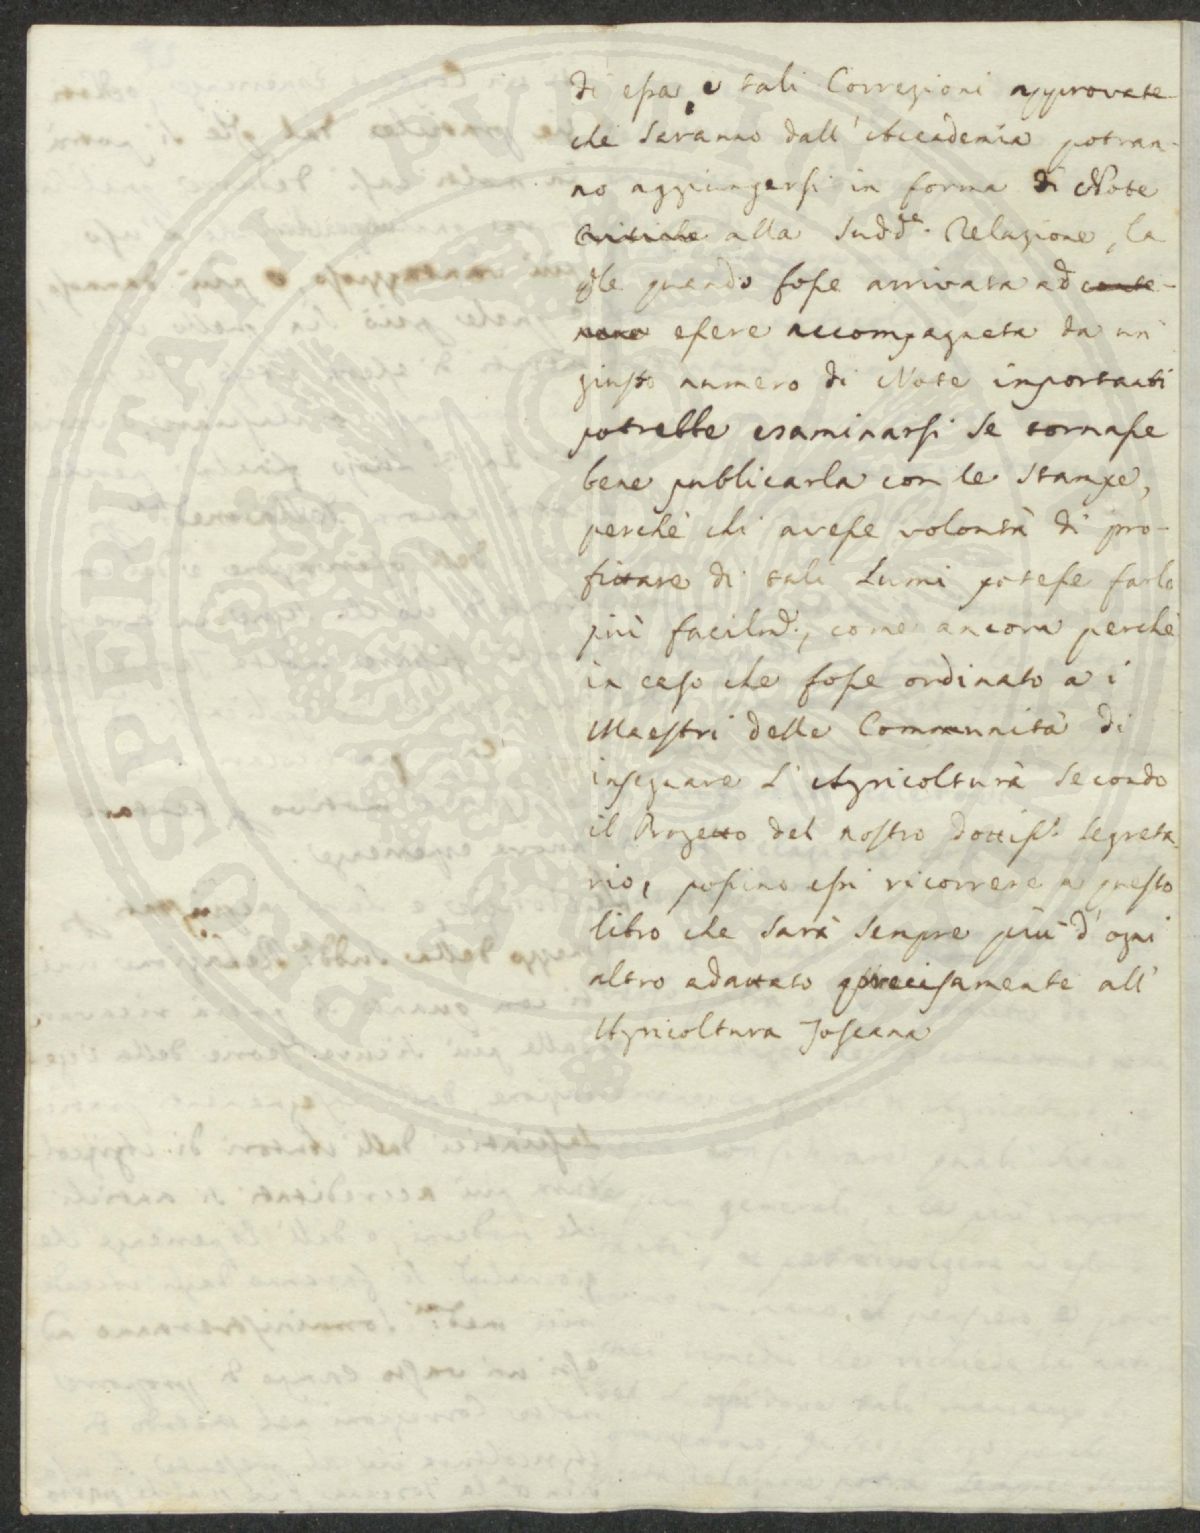 di essa, e tali Correzioni approvate
che saranno dall'Accademia potran-
no aggiungersi in forma di Note
Critiche alla sudd.e Relazione, la
q̃le quando fosse arrivata ad conte-
nere essere accompagnata da un
giusto numero di Note importanti
potrebbe esaminarsi se tornasse
bene publicarla con le stampe,
perchè chi avesse volontà di pro-
fittare di tali Lumi potesse farlo
più facilm̃., come ancora perchè
in caso che fosse ordinato a i
Maestri delle Communità di
insegnare l'Agricoltura secondo
il Progetto del nostro Dottiss.o Segreta
rio, possino essi ricorrere a questo
libro che sarà sempre più d'ogni
altro adattato precisamente all'
Agricoltura Toscana